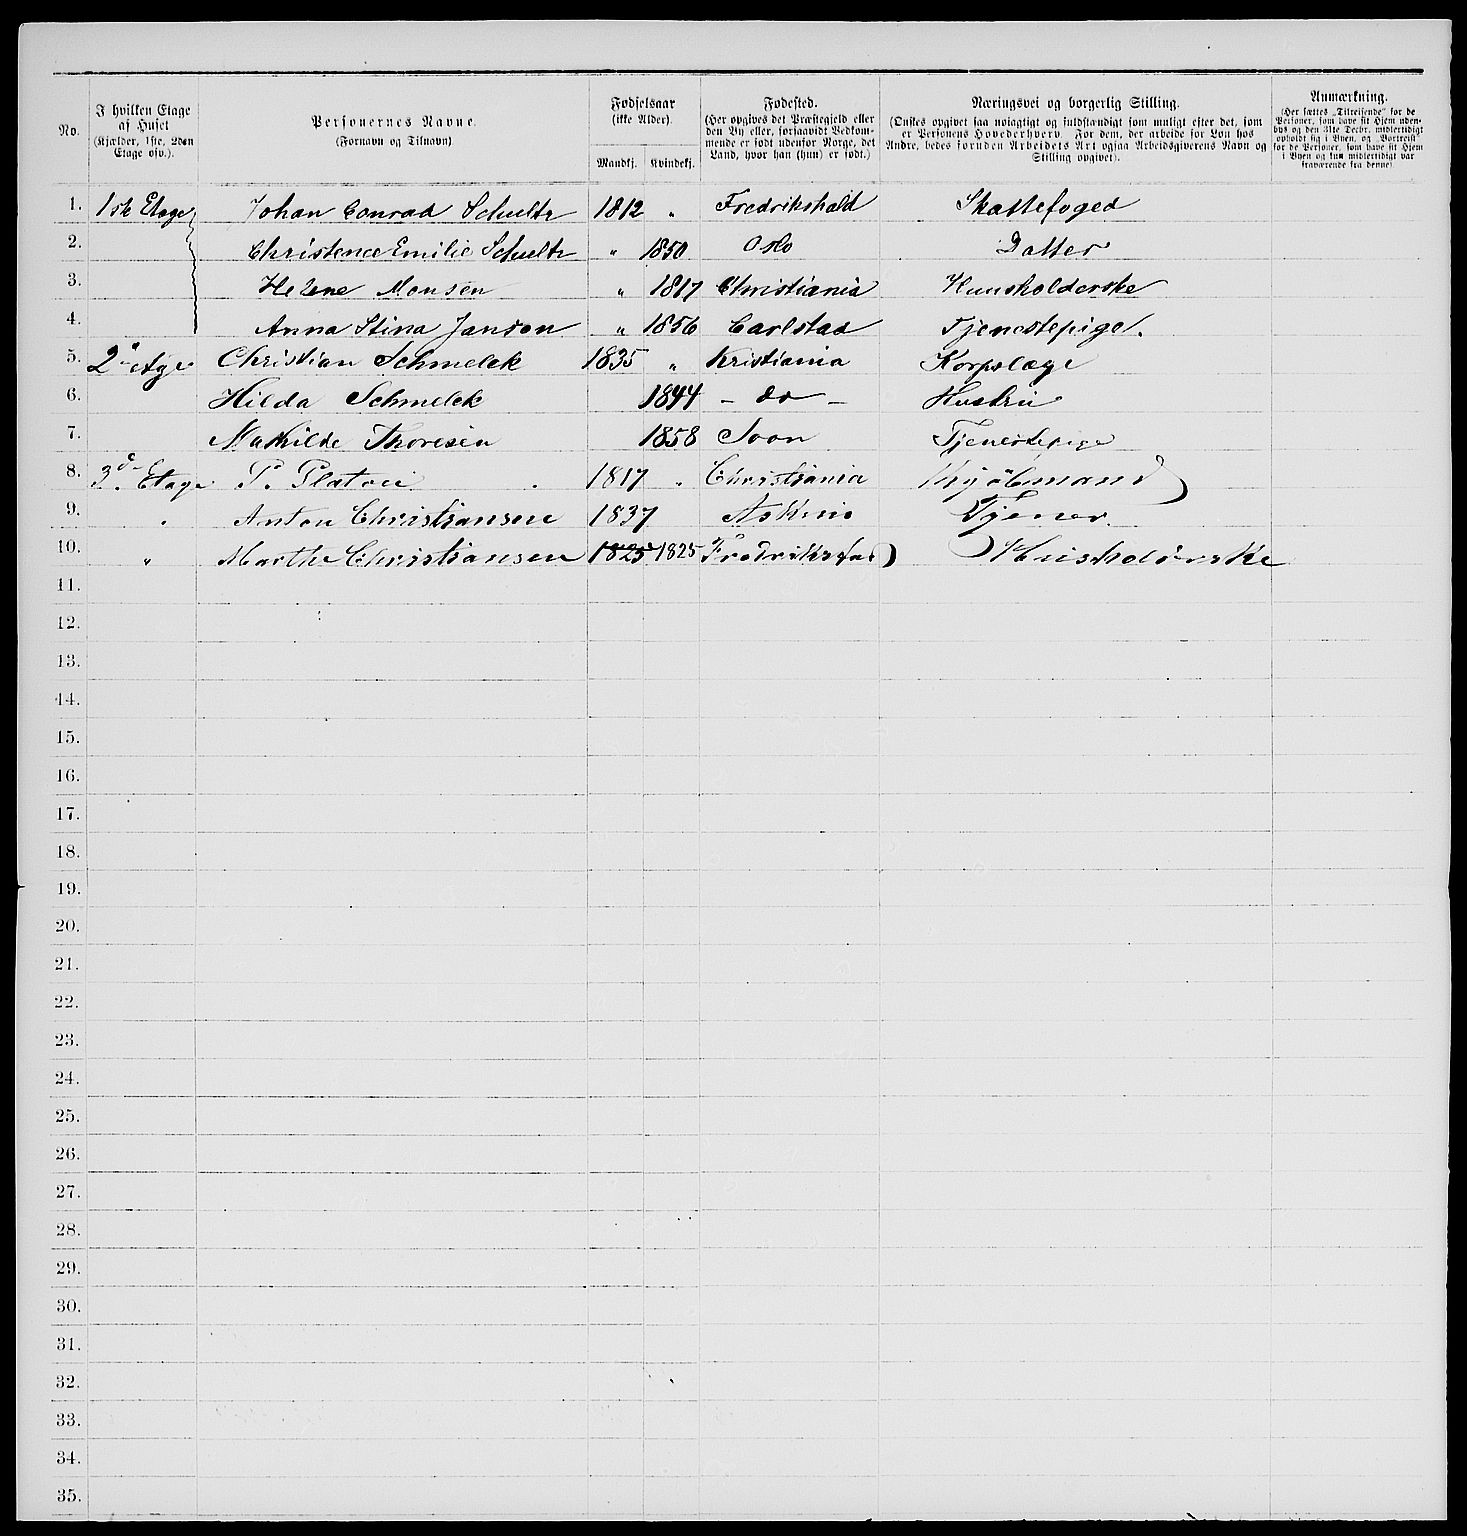 No.
I hvilken Etage af Huset (Kjælder, 1ste, 2den Etage osv.).
Personernes Navne. (Fornavn og Tilnavn)
Fødselsaar (ikke Alder). Mandkj. Kvindekj.
Fødested. (Her opgives det Præstegjeld eller den By eller, forsaavidt Vedkommende er født udenfor Norge, det Land, hvor han (hun) er født.)
Næringsvei og borgerlig Stilling. (Ønskes opgivet saa nøiagtigt og fuldstændigt som muligt efter det, som er Personens Hovederhverv. For dem, der arbeide for Løn hos Andre, bedes foruden Arbeidets Art ogsaa Arbeidsgiverens Navn og Stilling opgivet).
Anmærkning. (Her sættes „Tilreisende“ for de Personer, som have sit Hjem udenbys og den 31te Decbr. midlertidigt opholdt sig i Byen, og „Bortreist“ for de Personer, som have sit Hjem i Byen og kun midlertidigt var fraværende fra denne)
1. 1ste Etage Johan Conrad Schultz 1812 „ Fredrikshald Skattefoged
2. Christence Emilie Schultz „ 1850 Oslo Datter
3. Helene Monsen „ 1817 Christiania Huusholderske
4. Anna Stina Janson „ 1856 Carlstad Tjenestepige.
5. 2n Etge Christian Schmelck 1835 „ Kristiania Korpslæge
6. Hilda Schmelck 1844 – do – Hustru
7. Mathilde Thoresen 1858 Soon Tjenestepige
8. 3d. Etage P. Platou 1817 „ Christiania Kjøbmand
9. „ Anton Christiansen 1837 Askim Tjener.
10. „ Marthe Christiansen 1825 1825 Fredrikstad
11.
12.
13.
14.
15.
16.
17.
18.
19.
20.
21.
22.
23.
24.
25.
26.
27.
28.
29.
30.
31.
32.
33.
34.
35.